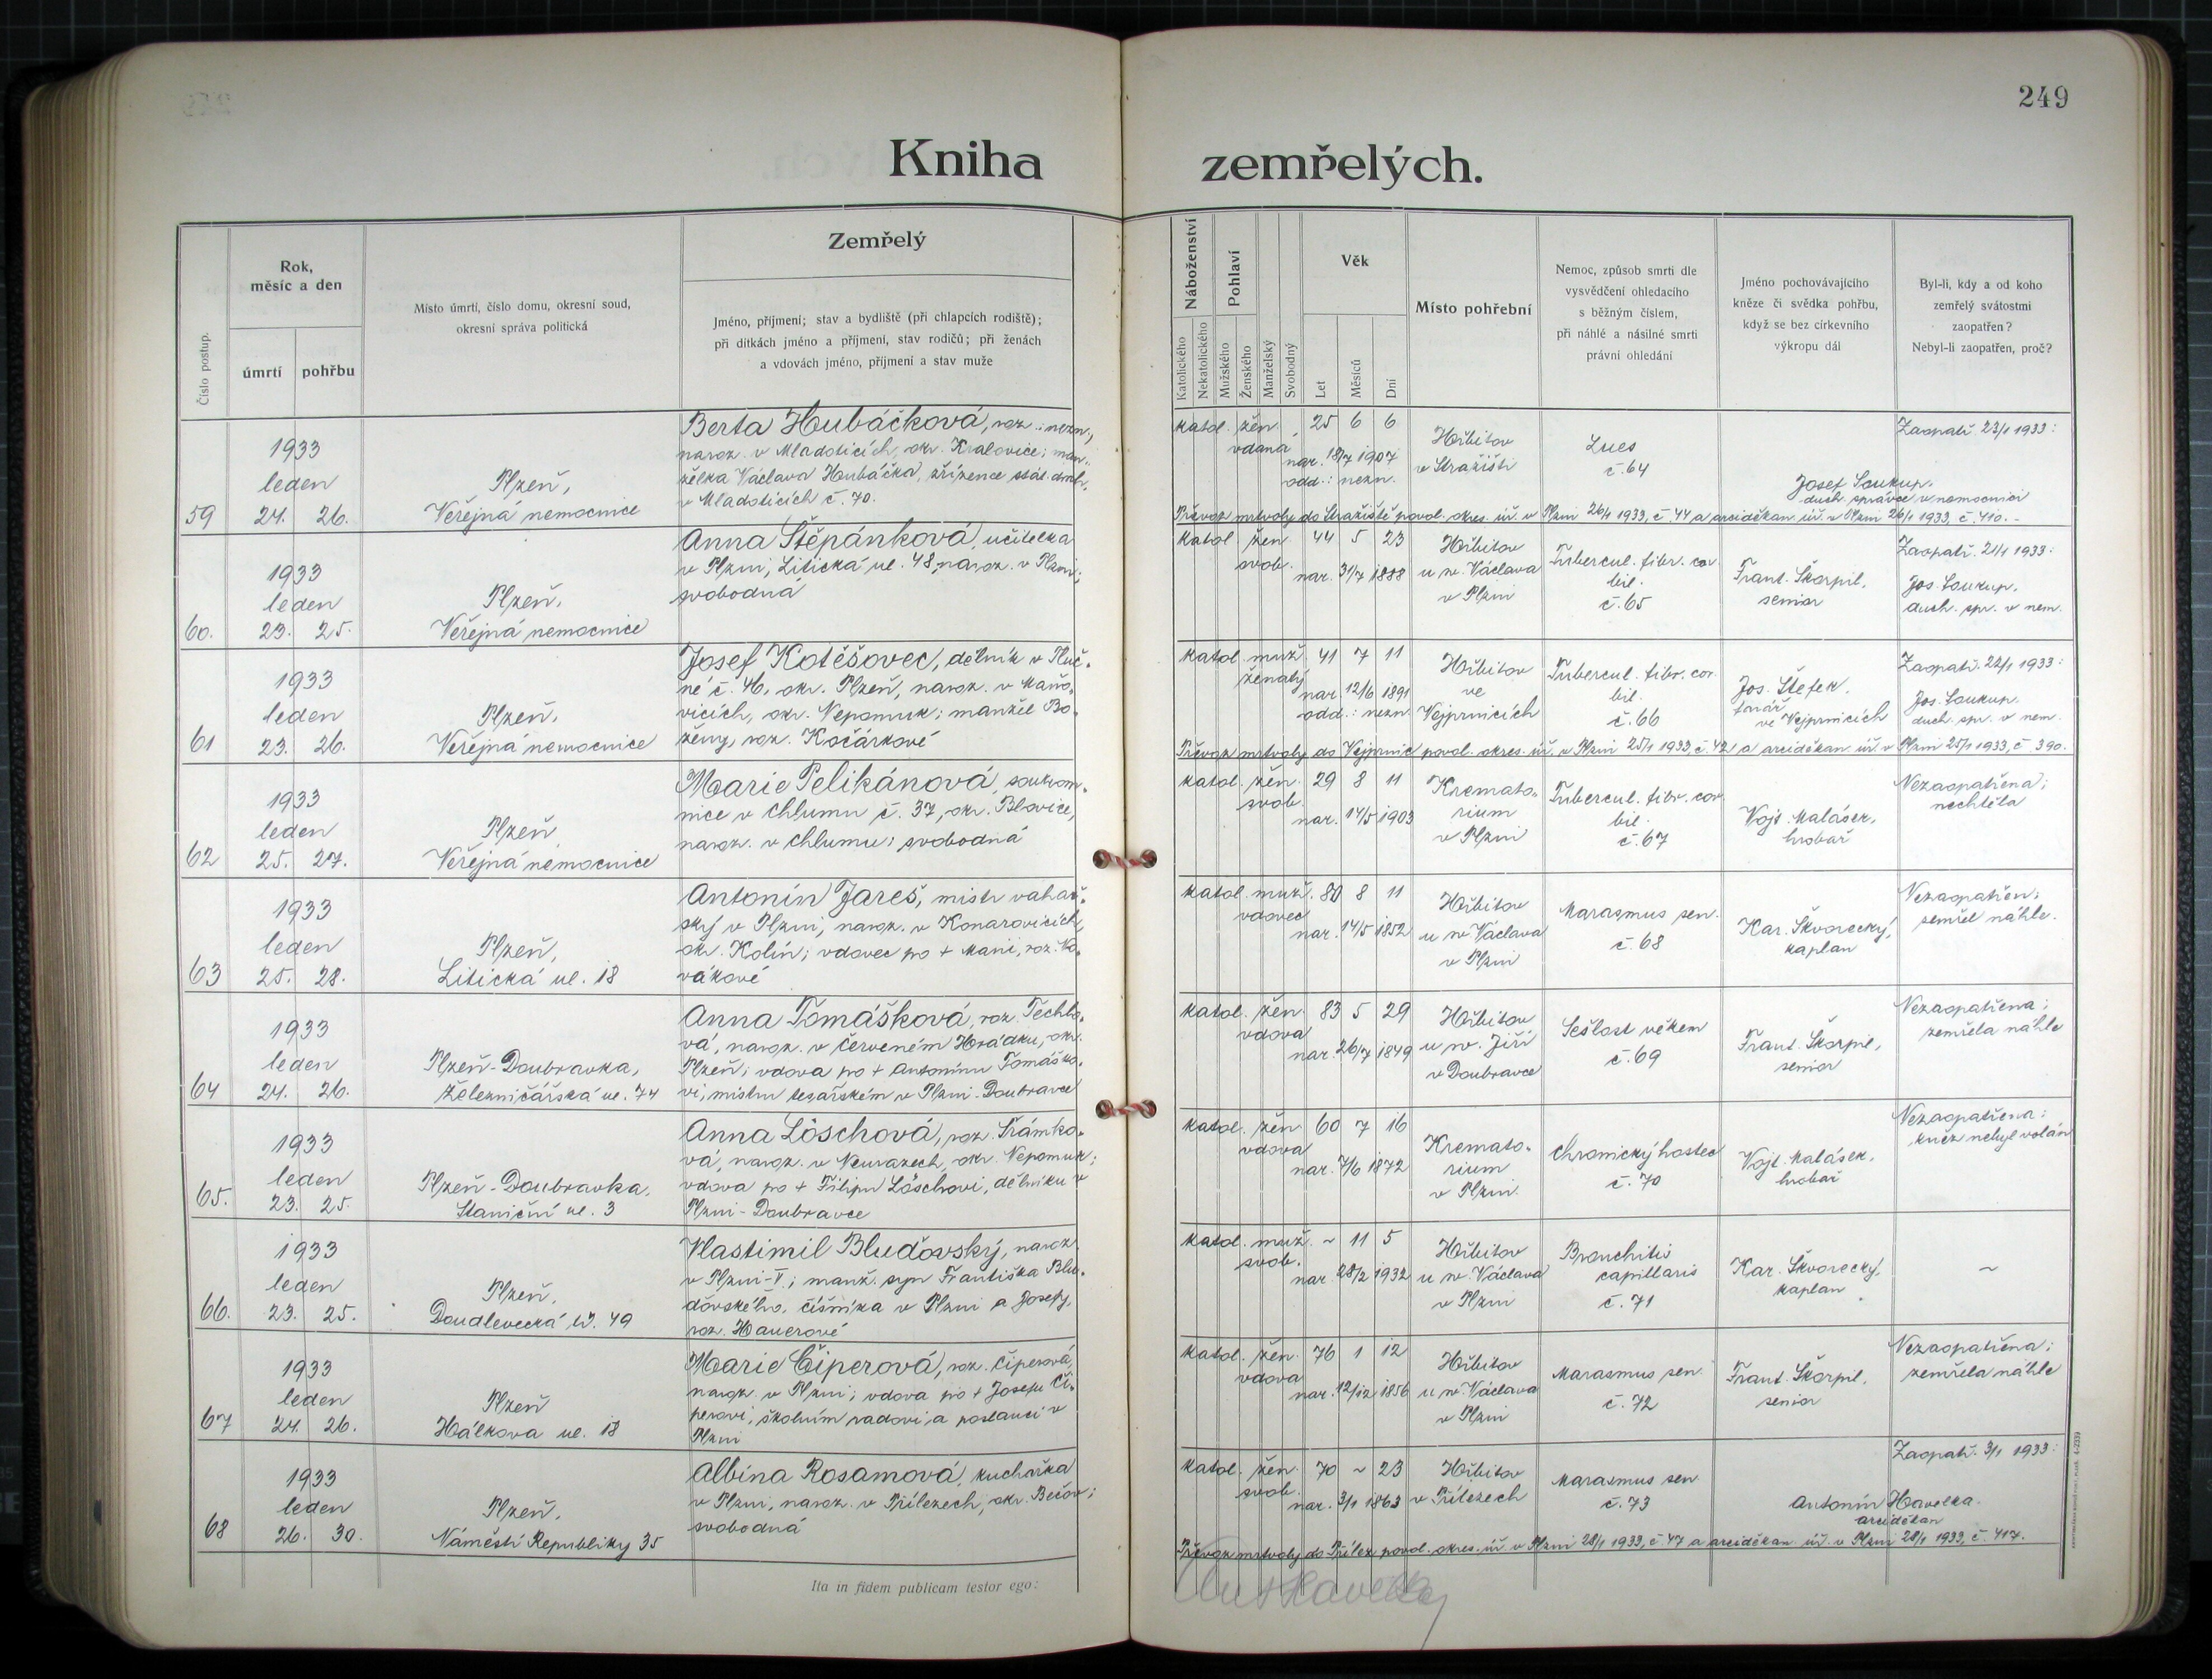 249
Kniha zemřelých.
Číslo postup.
Rok,
měsíc a den
úmrtí pohřbu
Místo úmrtí, číslo domu, okresní soud,
okresní správa politická
Zemřelý
Jméno, příjmení; stav a bydliště (při chlapcích rodiště);
při dítkách jméno a příjmení, stav rodičů; při ženách
a vdovách jméno, příjmení a stav muže
Náboženství
Katolického
Nekatolického
Pohlaví
Mužského
Ženského
Manželský
Svobodný
Věk
Let
Měsíců
Dní
Místo pohřební
Nemoc, způsob smrti dle
vysvědčení ohledacího
s běžným číslem,
při náhlé a násilné smrti
právní ohledání
Jméno pochovávajícího
kněze či svědka pohřbu,
když se bez církevního
výkropu dál
Byl-li, kdy a od koho
zemřelý svátostmi
zaopatřen?
Nebyl-li zaopatřen, proč?
59
1933
leden
24. 26.
Plzeň,
Veřejná nemocnice
Berta Hubáčková, roz.: nezn.,
naroz. v Mladoticích, okr. Kralovice; man-
želka Václava Hubáčka, zřízence stát. drah,
v Mladoticích č. 70.
katol. žen. 25 6 6
vdaná
nar. 18/7 1907
odd.: nezn.
Hřbitov
v Stražišti
Lues
č. 64
Zaopatř. 23/1 1933:
Josef Soukup,
duch. správce v nemocnici
Převoz mrtvoly do Stražiště povol. okres. úř. v Plzni 26/1 1933, č. 44 a arciděkan. úř. v Plzni 26/1 1933, č. 410.-
60.
1933
leden
23. 25.
Plzeň,
Veřejná nemocnice
Anna Štěpánková, učitelka
v Plzni, Litická ul. 48, naroz. v Plzni;
svobodná
katol. žen. 44 5 23
svob.
nar. 31/7 1888
Hřbitov
u sv. Václava
v Plzni
Tubercul. fibr. cav.
bil.
č. 65
Frant. Škorpil,
senior
Zaopatř. 21/1 1933:
Jos. Soukup,
duch. spr. v nem.
61
1933
leden
23. 26.
Plzeň,
Veřejná nemocnice
Josef Kotěšovec, dělník v Tluč-
né č. 46, okr. Plzeň, naroz. v Maňo-
vicích, okr. Nepomuk; manžel Bo-
ženy, roz. Kočárkové
katol. muž. 41 7 11
ženatý
nar. 12/6 1891
odd.: nezn.
Hřbitov
ve
Vejprnicích
Tubercul. fibr. cav.
bil.
č. 66
Jos. Štefek,
farář
ve Vejprnicích
Zaopatř. 22/1 1933:
Jos. Soukup,
duch. spr. v nem.
Převoz mrtvoly do Vejprnic povol. okres. úř. v Plzni 25/1 1933, č. 42 a arciděkan. úř. v Plzni 25/1 1933, č. 390.
62
1933
leden
25. 27.
Plzeň
Veřejná nemocnice
Marie Pelikánová, soukrom-
nice v Chlumu č. 37, okr. Blovice,
naroz. v Chlumu; svobodná
katol. žen. 29 8 11
svob.
nar. 14/5 1903
Kremato-
rium
v Plzni
Tubercul. fibr. cav.
bil.
č. 67
Vojt. Malásek,
hrobař
Nezaopatřena;
nechtěla
63
1933
leden
25. 28.
Plzeň,
Litická ul. 18
Antonín Jareš, mistr vahař-
ský v Plzni, naroz. v Konarovicích,
okr. Kolín; vdovec po + Marii, roz. No-
vákové
katol. muž. 80 8 11
vdovec
nar. 14/5 1852
Hřbitov
u sv. Václava
v Plzni
Marasmus sen.
č. 68
Kar. Škvorecký,
kaplan
Nezaopatřen;
zemřel náhle.
64
1933
leden
24. 26.
Plzeň-Doubravka,
Železničářská ul. 74
Anna Tomášková, roz. Těchlo-
vá, naroz. v Červeném Hrádku, okr.
Plzeň; vdova po + Antonínu Tomáško-
vi, mistru tesařském v Plzni-Doubravce
katol. žen. 83 5 29
vdova
nar. 26/7 1849
Hřbitov
u sv. Jiří
v Doubravce
Sešlost věkem
č. 69
Frant. Škorpil,
senior
Nezaopatřena;
zemřela náhle
65.
1933
leden
23. 25.
Plzeň-Doubravka,
Staniční ul. 3
Anna Löschová, roz. Trámko-
vá, naroz. v Neurazech, okr. Nepomuk;
vdova po + Filipu Löschovi, dělníku v
Plzni-Doubravce
katol. žen. 60 7 16
vdova
nar. 7/6 1872
Kremato-
rium
v Plzni
Chronický hostec
č. 70
Vojt. Malásek,
hrobař
Nezaopatřena:
kněz nebyl volán
66.
1933
leden
23. 25.
Plzeň,
Doudlevecká tř. 49
Vlastimil Bluďovský, naroz.
v Plzni-V; manž. syn Františka Blu-
ďovského, číšníka v Plzni a Josefy,
roz. Hauerové
katol. muž. ~ 11 5
svob.
nar. 28/2 1932
Hřbitov
u sv. Václava
v Plzni
Bronchitis
capillaris
č. 71
Kar. Škvorecký,
kaplan
~
67
1933
leden
24. 26.
Plzeň
Hálkova ul. 18
Marie Čiperová, roz. Čiperová,
naroz. v Plzni; vdova po + Josefu Či-
perovi, školním radovi a poslanci v
Plzni
katol. žen. 76 1 12
vdova
nar. 12/12 1856
Hřbitov
u sv. Václava
v Plzni
Marasmus sen
č. 72
Frant. Škorpil,
senior
Nezaopatřena;
zemřela náhle
68
1933
leden
26. 30.
Plzeň,
Náměstí Republiky 35
Albína Rosamová, kuchařka
v Plzni, naroz. v Přílezech, okr. Bečov;
svobodná
katol. žen. 70 ~ 23
svob.
nar. 3/1 1863
Hřbitov
v Přílezech
Marasmus sen
č. 73
Zaopatř. 3/1 1933:
Antonín Havelka,
arciděkan
Převoz mrtvoly do Přílez povol. okres. úř. v Plzni 28/1 1933, č. 47 a arciděkan. úř. v Plzni 28/1 1933, č. 417.
Ita in fidem publicam testor ego:
Ant Havelka